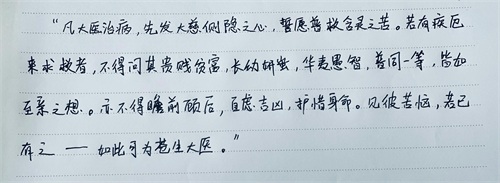 “凡大医治病，先发大慈恻隐之心，誓愿普救含灵之苦。若有疾厄
来求救者，不得问其贵贱贫富，长幼妍蚩，华夷愚智，普同一等，皆如
至亲之想。亦不得瞻前顾后，自虑吉凶，护惜身命。见彼苦恼，若己
有之 —— 如此可为苍生大医。”